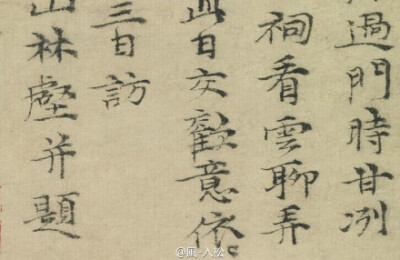 過門時甘冽
祠看雲聊弄
此日交歡意依〻
三日訪
山林壑并題
@風-入松